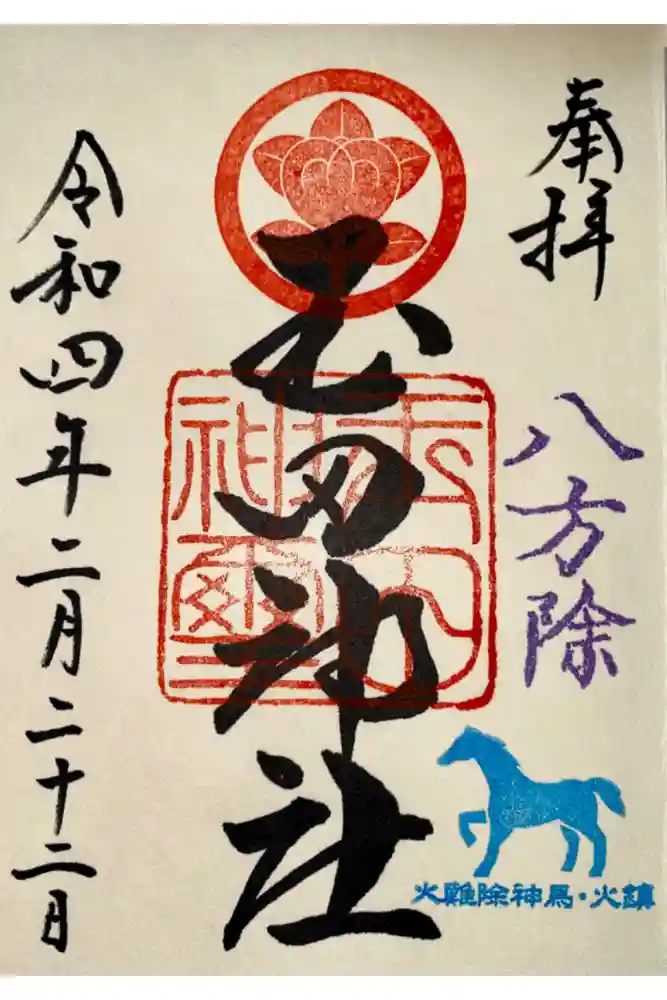 奉拝
八方除
火難除神馬・火鎮
玉田神社
令和四年二月二十二日